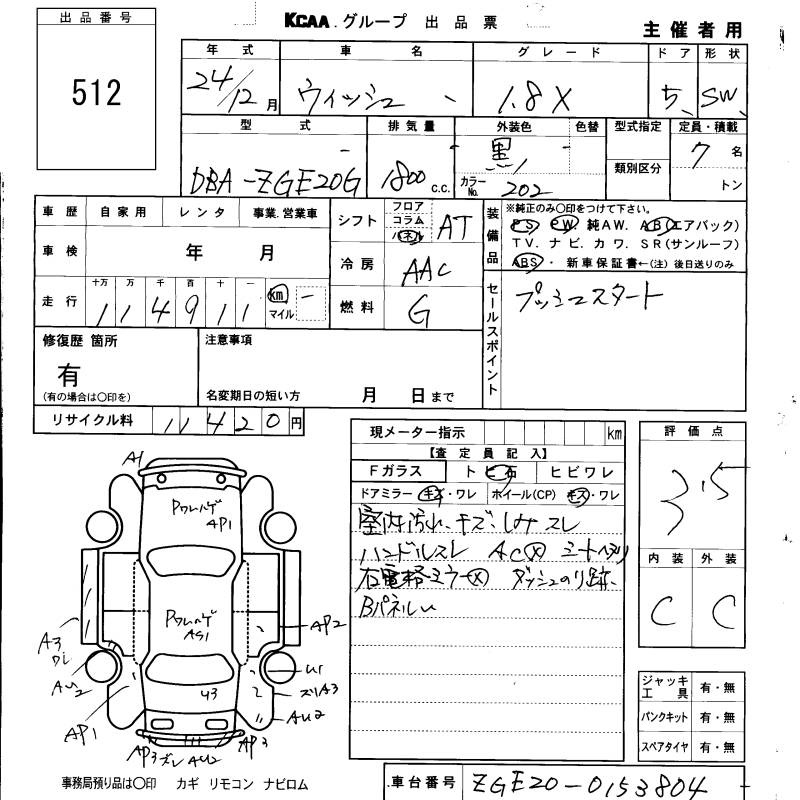 出品番号
512
KCAA.グループ 出品票
主催者用
年式 車名 グレード ドア 形状
24/12月 ウィッシュ 1.8X 5 SW
型式 排気量 外装色 色替 型式指定 定員・積載
DBA-ZGE20G 1800c.c. 黒 類別区分 7名
カラーNo. 202 トン
車歴 自家用 レンタ 事業.営業車
シフト フロア コラム パネル AT
装備品 ※純正のみ〇印をつけて下さい。
PS PW 純AW. AB(エアバック)
TV. ナビ. カワ. SR(サンルーフ)
ABS・ 新車保証書←(注)後日送りのみ
車検 年 月
冷房 AAC
走行 十万 万 千 百 十 一
114911 km マイル
燃料 G
セールスポイント プッシュスタート
修復歴 箇所
有
(有の場合は〇印を)
注意事項
名変期日の短い方 月 日まで
リサイクル料 11420円
現メーター指示 km
【査定員記入】
Fガラス トビ石 ヒビワレ
ドアミラー キズ・ワレ ホイール(CP) キズ・ワレ
室内汚れ、キズ、しみ スレ
ハンドルスレ AC✕ シートヘタリ
右電格ミラー✕ ダッシュのり跡、
Bパネルu
評価点
3.5
内装 外装
C C
A1
Pワレハゲ
AP1
Pワレハゲ
AS1
A3
AU2
AP1
AP2
U1
A3
AU2
U3
AP3 ズレ AU2 AP3
ジャッキ工具 有・無
パンクキット 有・無
スペアタイヤ 有・無
事務局預り品は〇印 カギ リモコン ナビロム
車台番号 ZGE20-0153804